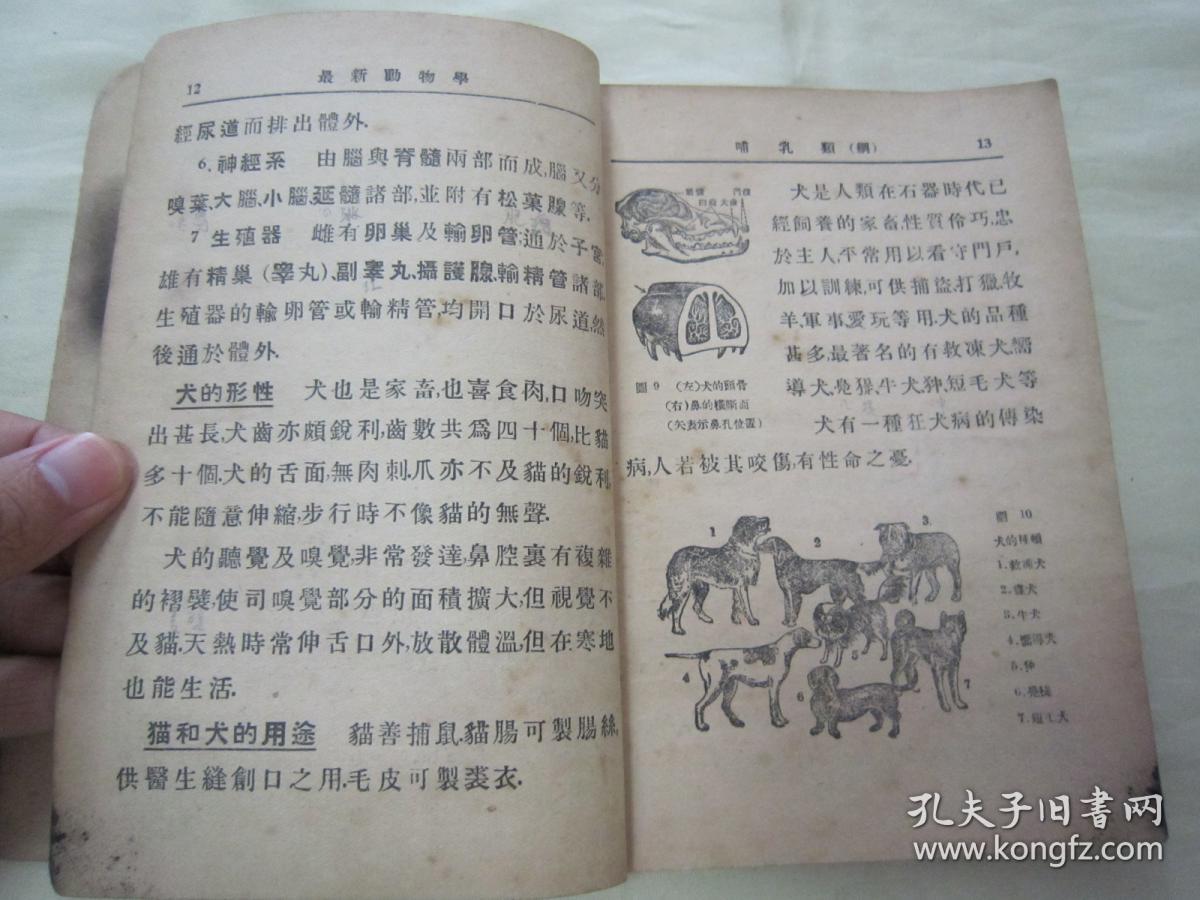 12
最新動物學
經尿道而排出體外.
6. 神經系 由腦與脊髓兩部而成,腦又分
嗅葉、大腦、小腦、延髓諸部,並附有松菓腺等.
7 生殖器 雌有卵巢及輸卵管;通於子宮,
雄有精巢(睾丸)、副睾丸、攝護腺、輸精管諸部.
生殖器的輸卵管或輸精管,均開口於尿道,然
後通於體外.
犬的形性 犬也是家畜,也喜食肉,口吻突
出甚長,犬齒亦頗銳利,齒數共爲四十個,比貓
多十個.犬的舌面,無肉刺.爪亦不及貓的銳利,
不能隨意伸縮,步行時不像貓的無聲.
犬的聽覺及嗅覺,非常發達,鼻腔裏有複雜
的褶襞,使司嗅覺部分的面積擴大,但視覺不
及貓.天熱時常伸舌口外,放散體溫,但在寒地
也能生活.
猫和犬的用途 貓善捕鼠,貓腸可製腸絲,
供醫生縫創口之用.毛皮可製裘衣.
哺乳類(綱)
13
門齒
犬齒
臼齒
犬是人類在石器時代已
經飼養的家畜,性質伶巧,忠
於主人,平常用以看守門戶,
加以訓練,可供捕盜,打獵,牧
羊,軍事,愛玩等用.犬的品種
甚多,最著名的有救凍犬,嚮
導犬,牛犬,狆,短毛犬等
圖9 (左)犬的頭骨
(右)鼻的橫斷面
(矢表示鼻孔位置)
犬有一種狂犬病的傳染
病,人若被其咬傷,有性命之憂.
圖 10
犬的種類
1.救凍犬
3.牛犬
4.嚮導犬
5.狆
1
2
3.
4
5
6
7
孔夫子旧书网
www.kongfz.com